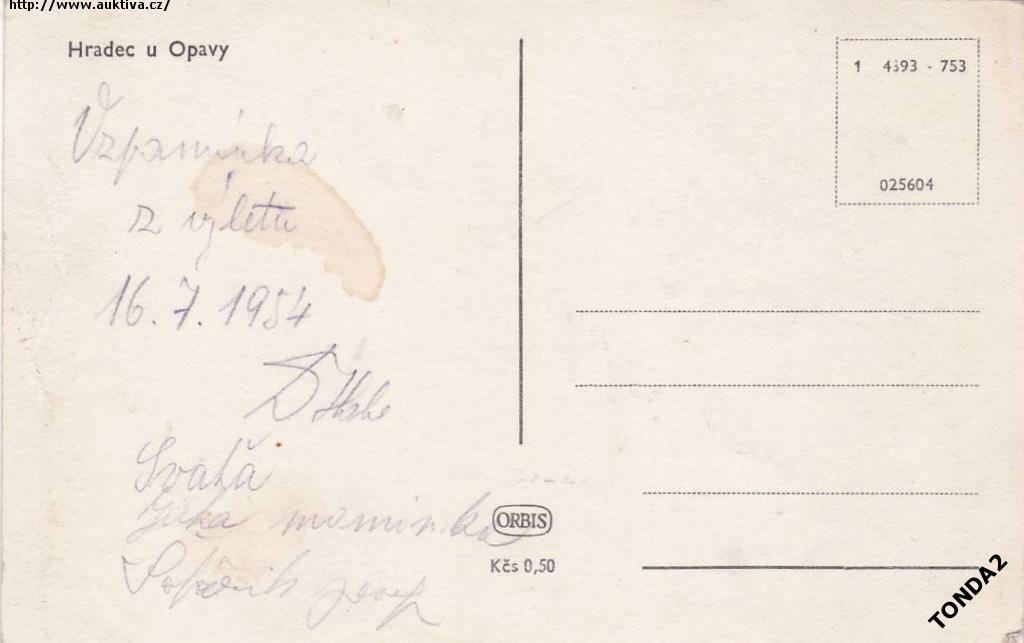 http://www.auktiva.cz/
Hradec u Opavy
Vzpamínka
z výletu
16.7.1954
Svaťa
Jirka maminka
1 4393 - 753
025604
ORBIS
Kčs 0,50
TONDA2